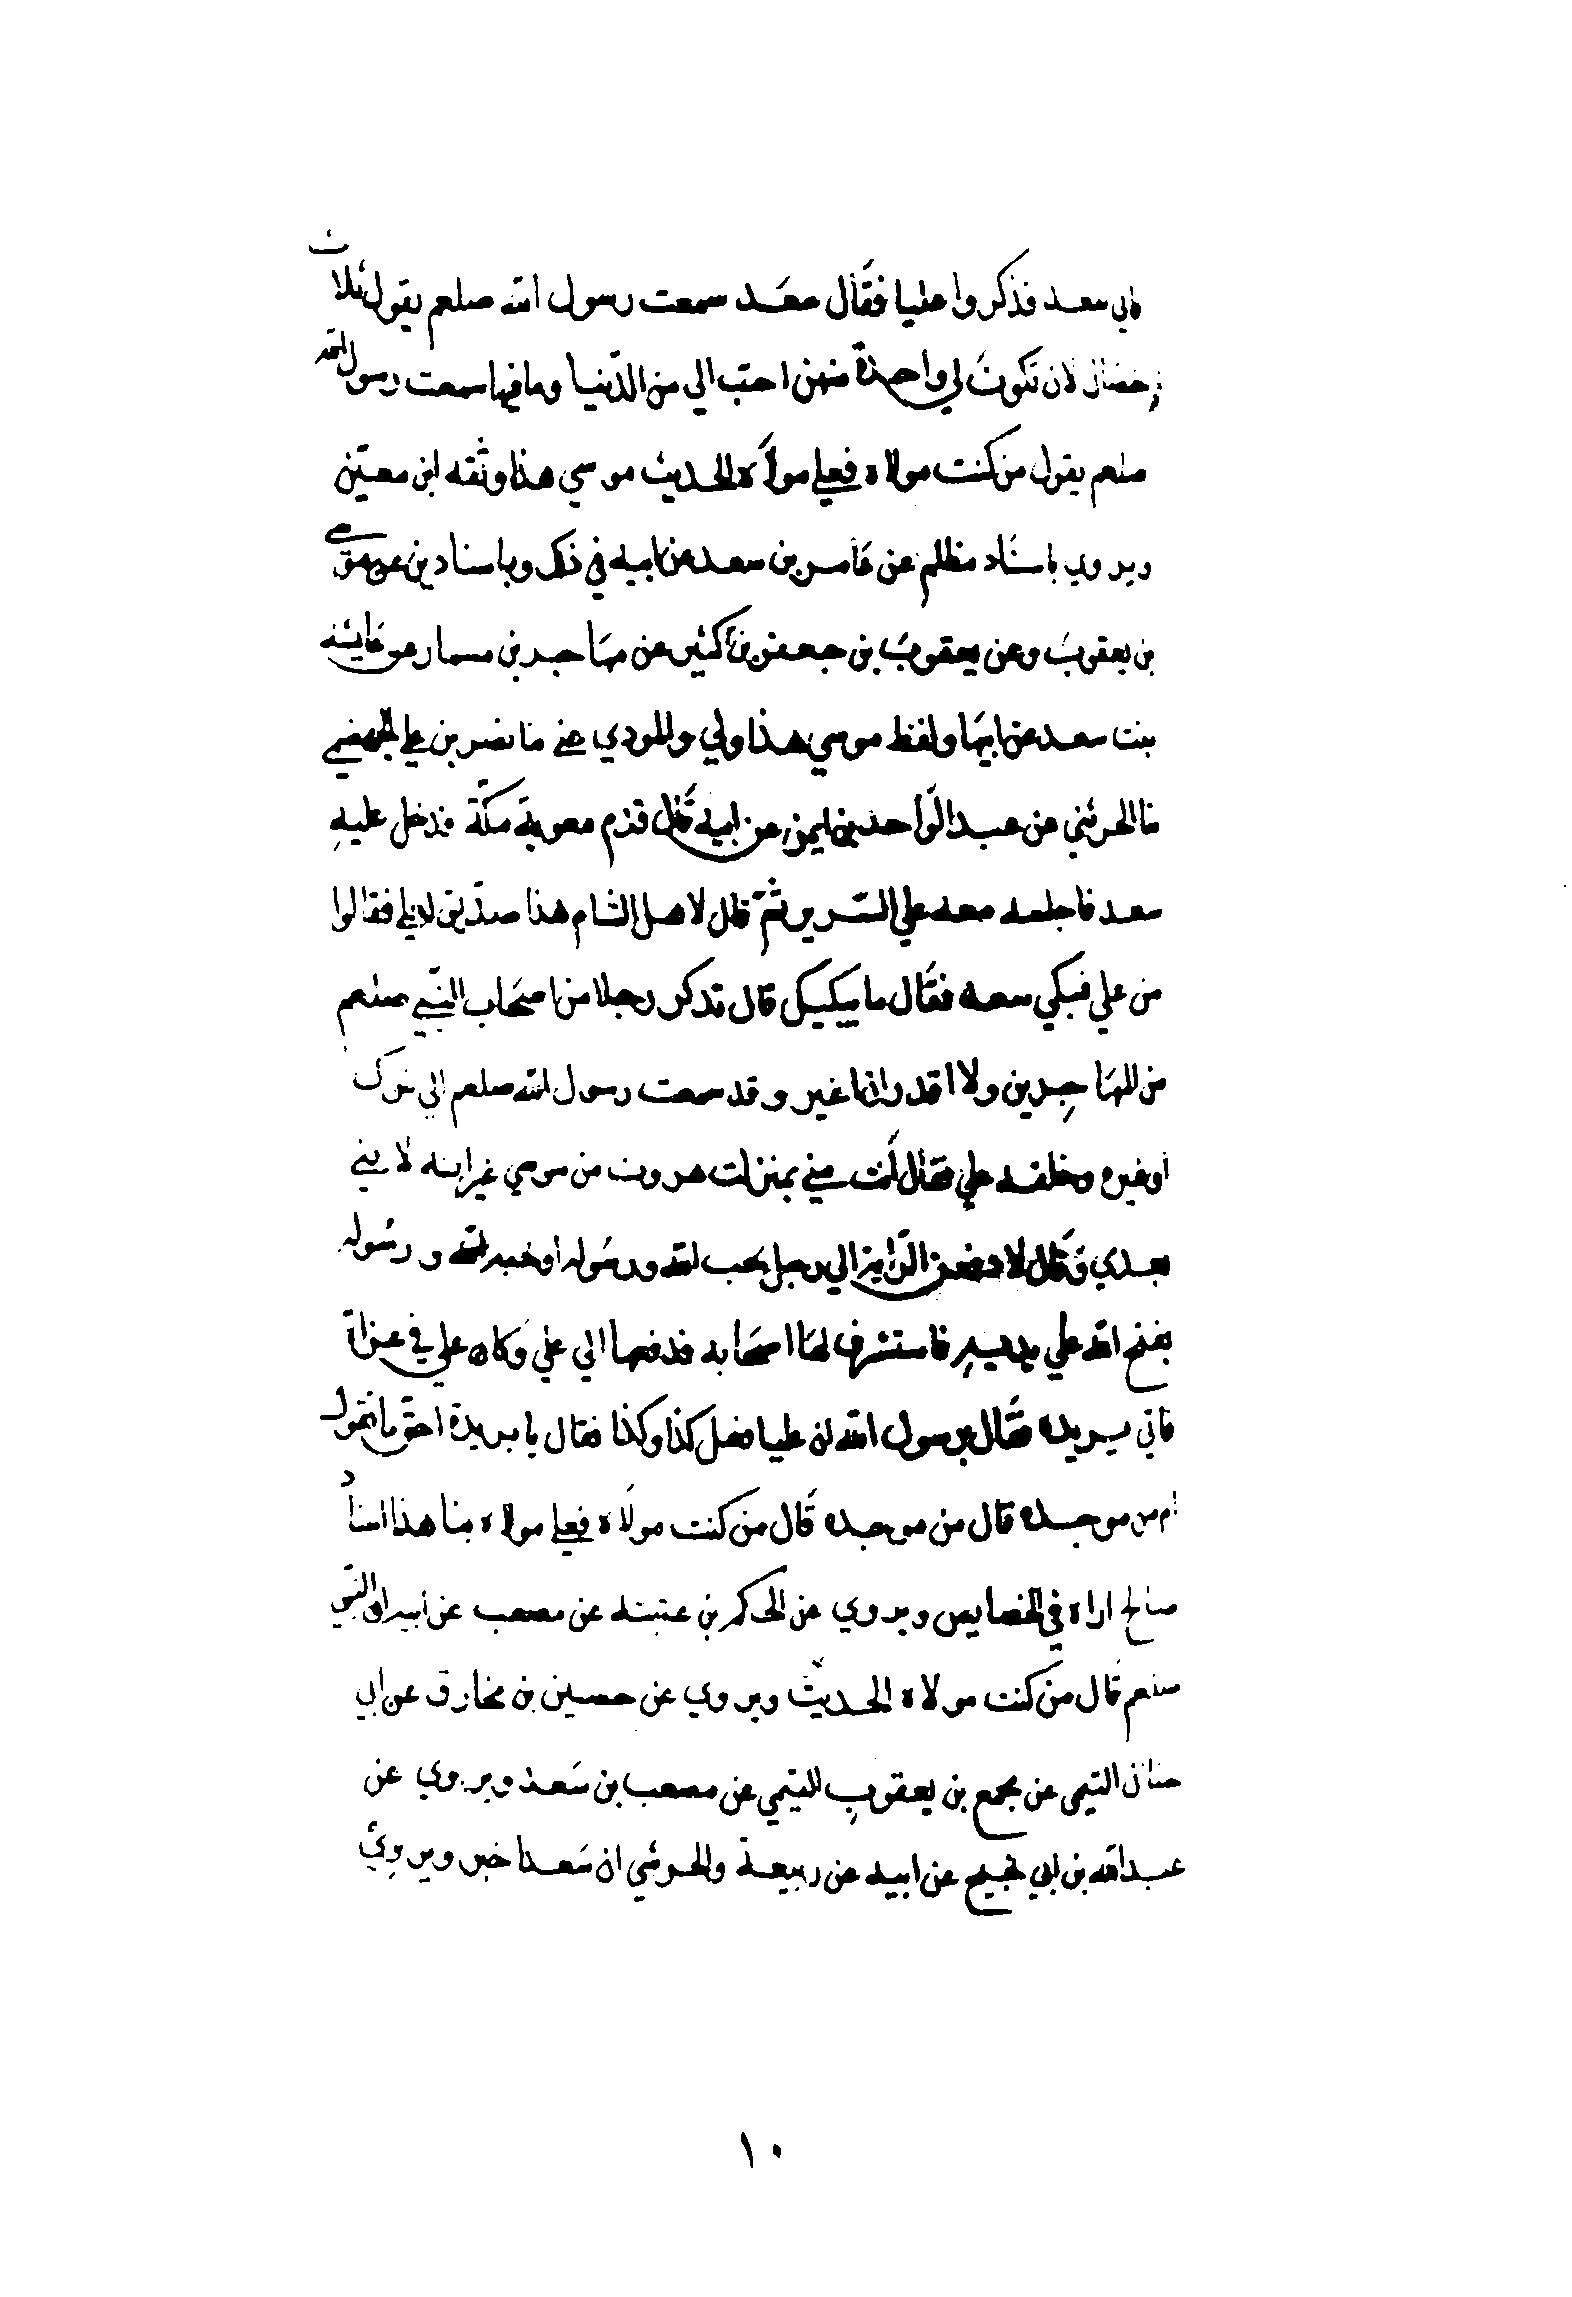 فذكروا عليا فقال سعد سمعت رسول الله صلعم يقول ثلاث
خصال لان تكون لي واحدة منهن احب الي من الدنيا وما فيها سمعت رسول الله
صلعم يقول من كنت مولاه فعلي مولاه الحديث موسي هذا وثقه ابن معين
ويروي باسناد مظلم عن عامر بن سعد عن ابيه في ذلك وباسنادين عن موسي
بن يعقوب وعن يعقوب بن جعفر بن كثير عن مهاجر بن مسمار عن عايشه
بنت سعد عن ابيها ولفظ موسي هذا وليي والمودي عني نا نصر بن علي الجهضمي
نا الحريبي عن عبد الواحد بن ايمن عن ابيه قال قدم معوية مكة فدخل عليه
سعد فاجلسه معه علي السرير ثم قال لاهل الشام هذا صديق لعلي فقالوا
من علي فبكي سعد فقال ما يبكيك قال تذكر رجلا من اصحاب النبي صلعم
من المهاجرين ولا اقدر ان اغير وقد سمعت رسول الله صلعم
او غيره وخلفه علي فقال انت مني بمنزلت هرون من موسي غير انه لا نبي
بعدي وقال لادفعن الراية الي رجل يحب الله ورسوله او يحبه الله ورسوله
يفتح الله علي يديه فاستشرف لها اصحابه فدفعها الي علي وكان علي في غزاة
فاتي بريده فقال يرسول الله ان عليا فعل كذا وكذا فقال يا بريدة احق ما تقول
ام من موجده قال من موجده قال من كنت مولاه فعلي مولاه هذا اسناد
صالح اراه في الخصايص ويروي عن الحكم بن عتيبه عن مصعب عن ابيه ان النبي
صلعم قال من كنت مولاه الحديث ويروي عن حصين بن مخارق عن ابي
حنان التيمي عن مجمع بن يعقوب التيمي عن مصعب بن سعد ويروي عن
عبد الله بن ابي نجيح عن ابيه عن ربيعة والحرشي ان سعدا خبر ويروي
١٠